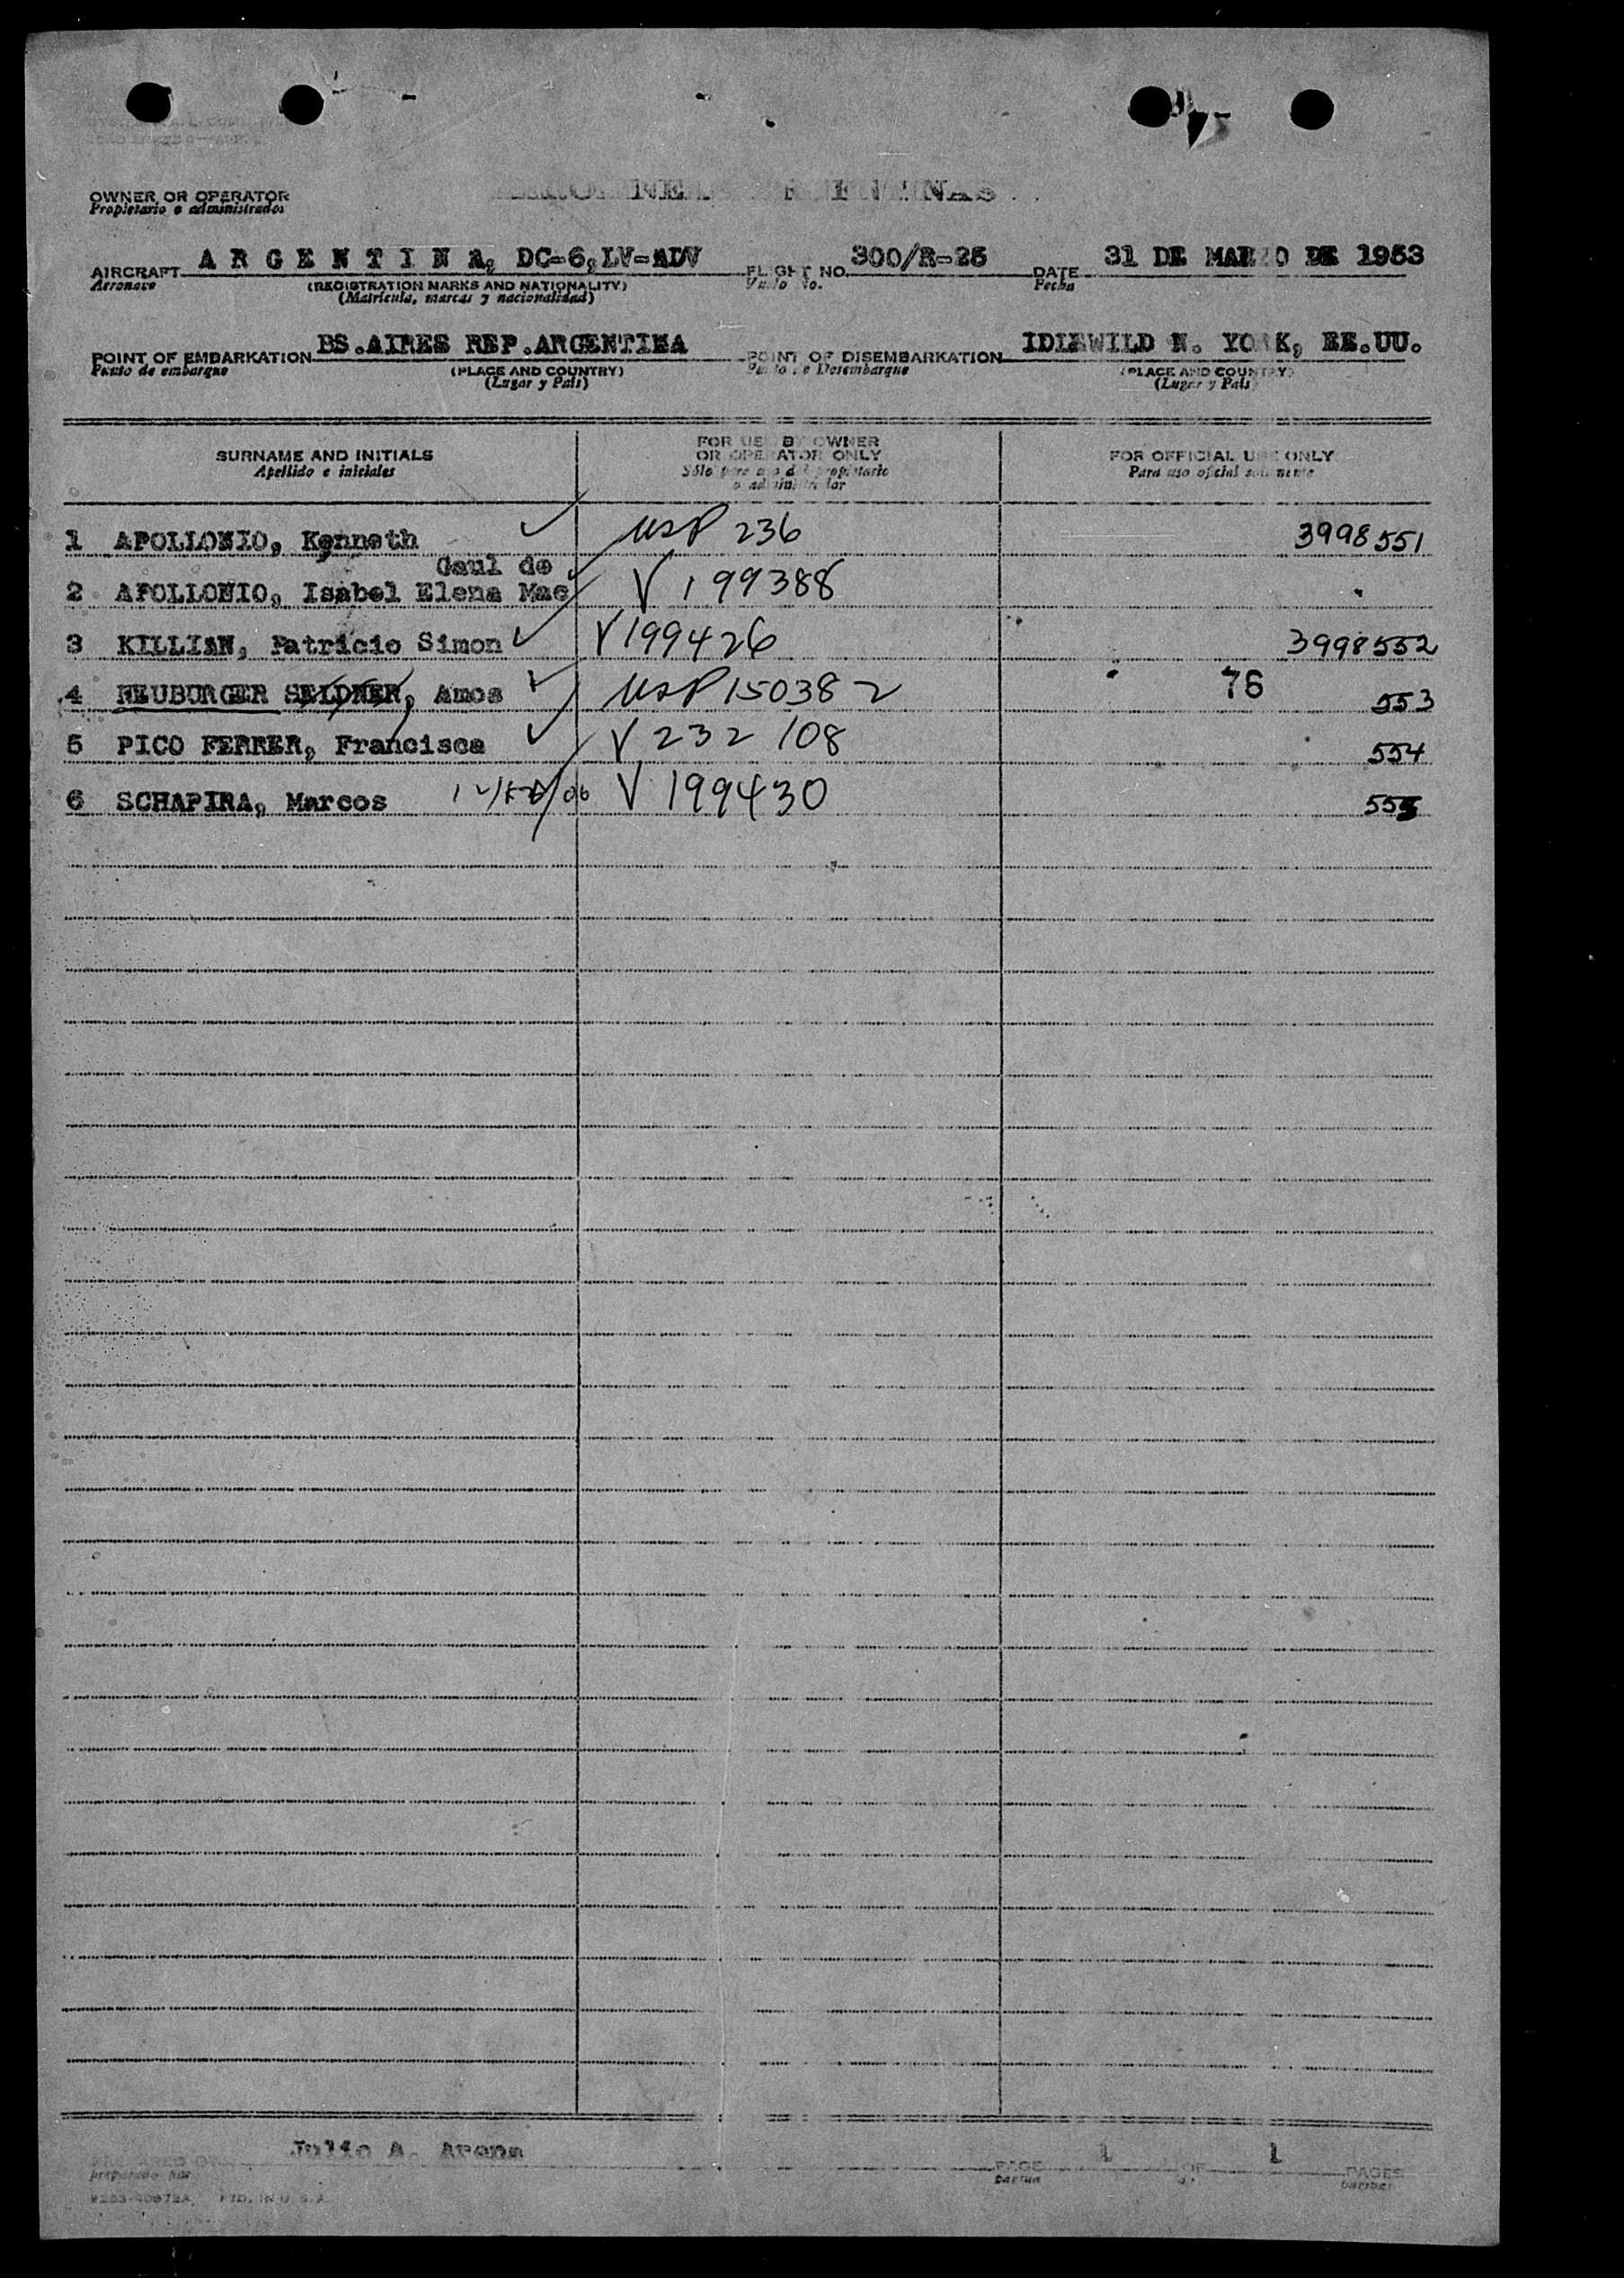 OWNER OR OPERATOR
Propietario o administrador
AIRCRAFT A R G E N T I N A, DC-6, LV-ADV FLIGHT NO. 300/R-25 DATE 31 DE MARZO DE 1953
Aeronave (REGISTRATION MARKS AND NATIONALITY) Vuelo No. Fecha
(Matrícula, marcas y nacionalidad)
POINT OF EMBARKATION BS.AIRES REP.ARGENTINA POINT OF DISEMBARKATION IDLEWILD N. YORK, EE.UU.
Punto de embarque (PLACE AND COUNTRY) Punto de Desembarque (PLACE AND COUNTRY)
(Lugar y País) (Lugar y País)
SURNAME AND INITIALS FOR USE BY OWNER OR OPERATOR ONLY FOR OFFICIAL USE ONLY
Apellido e iniciales Sólo para uso del propietario o administrador Para uso oficial solamente
1 APOLLONIO, Kenneth USP 236 3998551
Gaul de
2 APOLLONIO, Isabel Elena Mac V 199388
3 KILLIAN, Patricio Simon V199426 3998552
4 NEUBURGER SELDNER, Amos USP 150382 76 553
5 PICO FERRER, Francisca V 232 108 554
6 SCHAPIRA, Marcos V 199430 555
Julio A. Arena
PAGE 1 OF 1 PAGES